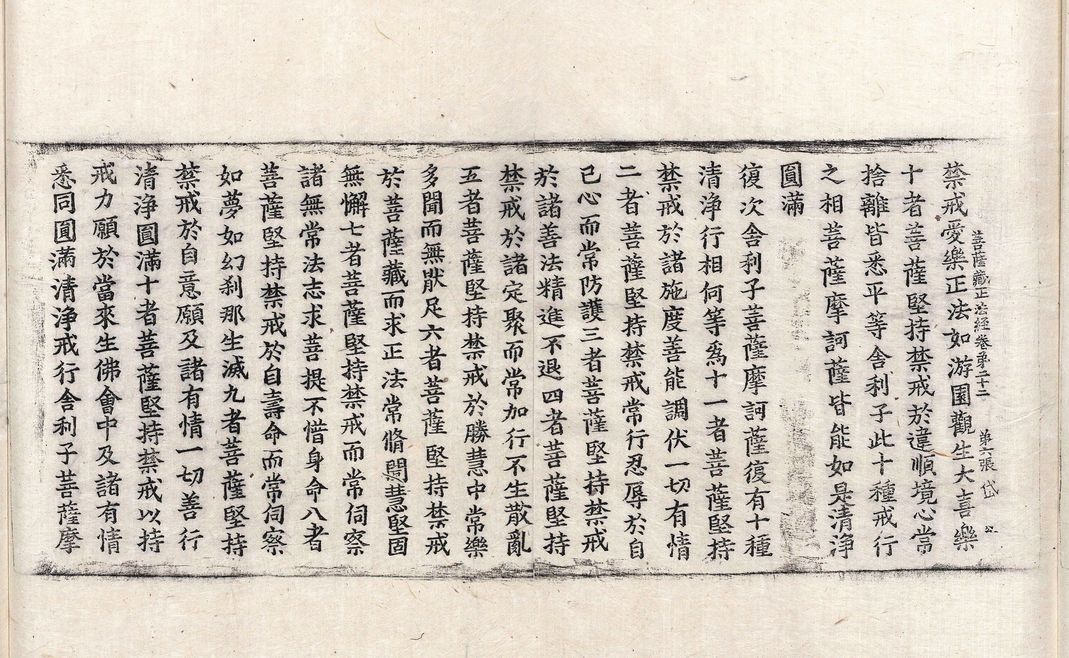 菩薩藏正法經卷第二十二 第六張 岱
禁戒愛樂正法如游園觀生大喜樂
十者菩薩堅持禁戒於違順境心常
捨離皆悉平等舍利子此十種戒行
之相菩薩摩訶薩皆能如是清淨
圓滿
復次舍利子菩薩摩訶薩復有十種
清淨行相何等爲十一者菩薩堅持
禁戒於諸施度善能調伏一切有情
二者菩薩堅持禁戒常行忍辱於自
己心而常防護三者菩薩堅持禁戒
於諸善法精進不退四者菩薩堅持
禁戒於諸定聚而常加行不生散亂
五者菩薩堅持禁戒於勝慧中常樂
多聞而無猒足六者菩薩堅持禁戒
於菩薩藏而求正法常脩慧堅固
無懈七者菩薩堅持禁戒而常伺察
諸無常法志求菩提不惜身命八者
菩薩堅持禁戒於自壽命而常伺察
如夢如幻刹那生滅九者菩薩堅持
禁戒於自意願及諸有情一切善行
清淨圓滿十者菩薩堅持禁戒以持
戒力願於當來生佛會中及諸有情
悉同圓滿清淨戒行舍利子菩薩摩